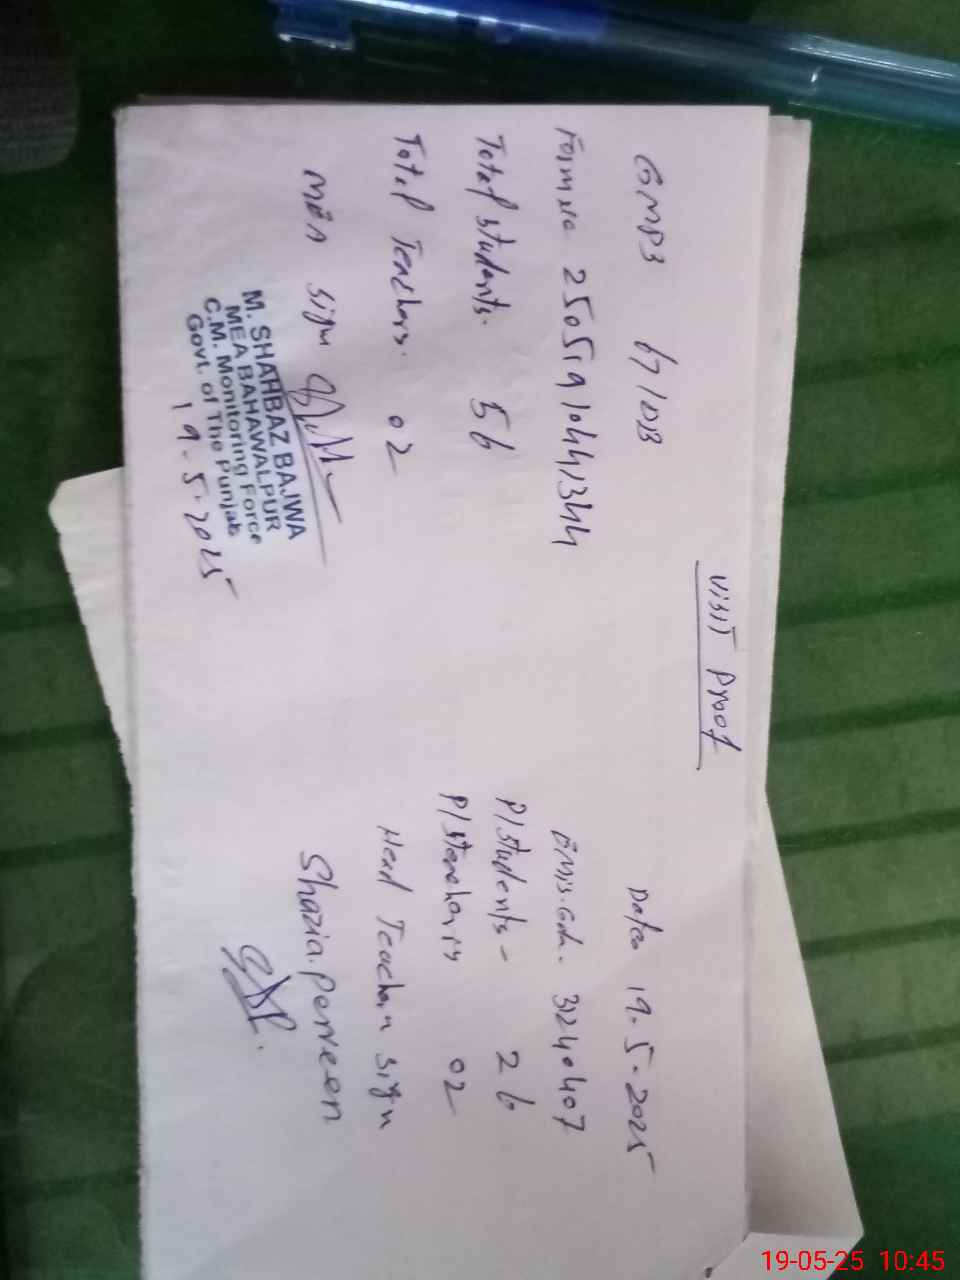 VISIT Proof
GMPS 67/DB
Date 19.5.2025
Form no 25051910441344
Emis.Code. 31240407
Total students. 56
P/Students - 26
Total Teachers. 02
P/S Teachers 02
MEA sign
Head Teachers sign
M. SHAHBAZ BAJWA
MEA BAHAWALPUR
C.M. Monitoring Force
Govt. of The Punjab
19.5.2025
Shazia.perveen
19-05-25 10:45